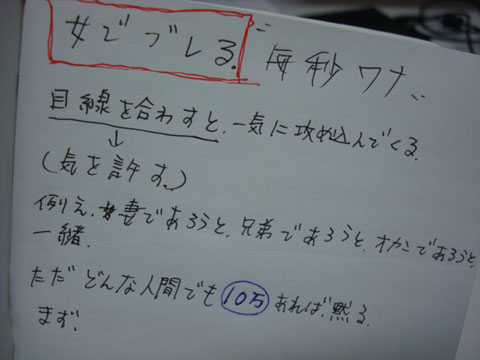 女でブレる. 毎秒ワナ..
目線を合わすと、一気に攻め込んでくる.
↓
(気を許す。)
例え、妻であろうと、兄弟であろうと、オカンであろうと、
一緒.
ただ どんな人間でも 10万 あれば、黙る.
まず.